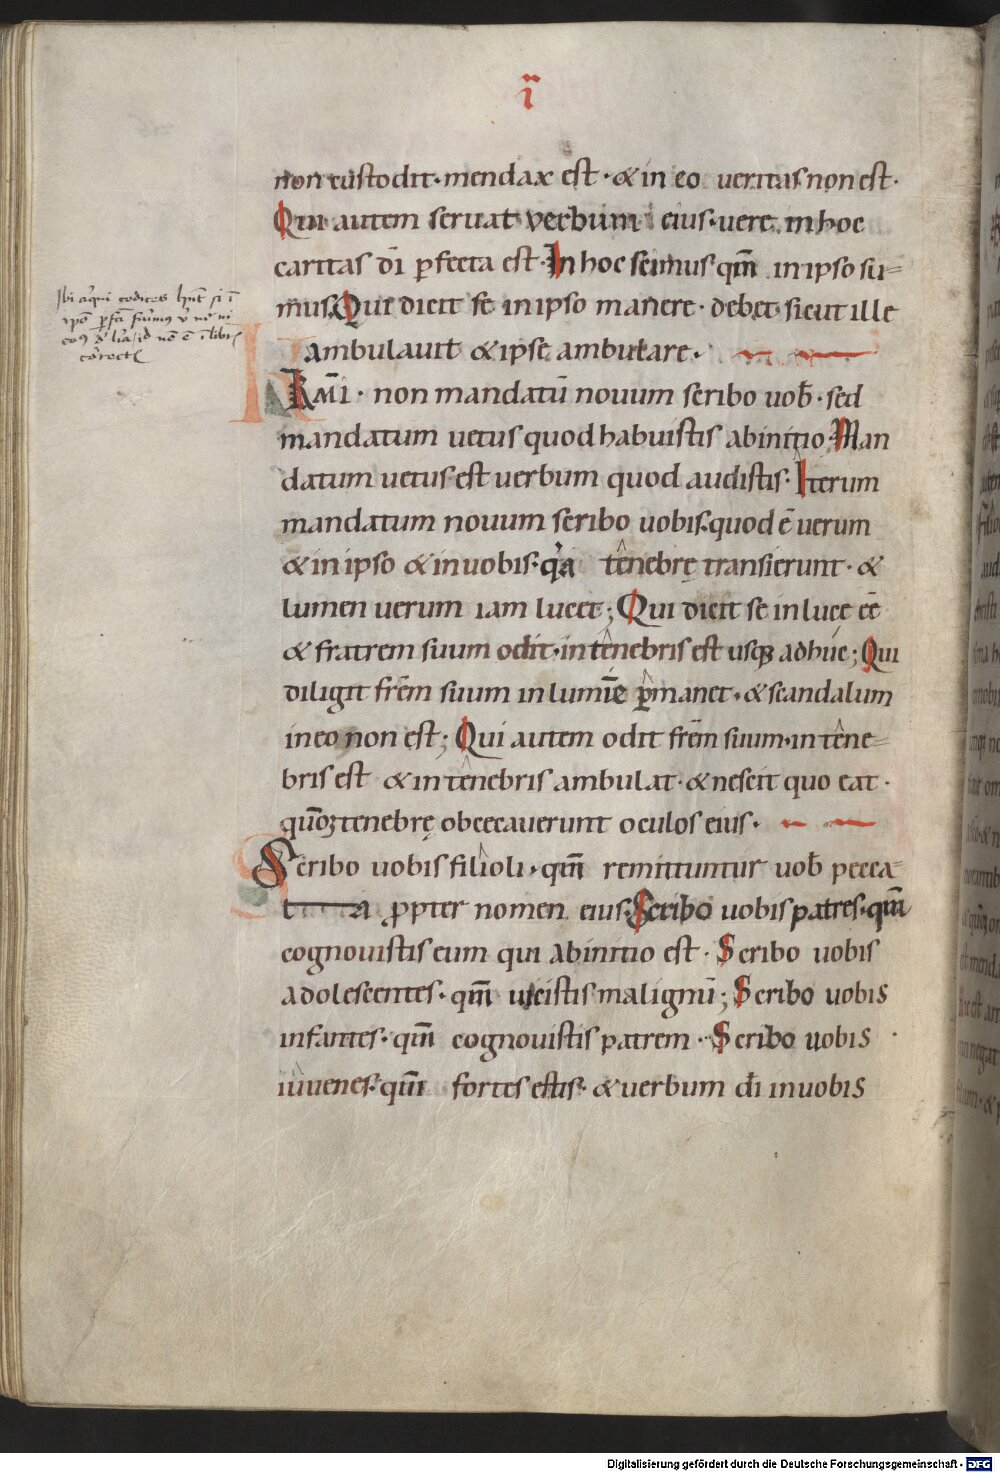 ı̈
non custodit· mendax est· & in eo ueritas non est·
Qui autem seruat verbum eius· uere in hoc
caritas dī ꝑfecta est· In hoc scimus qm̄ in ipso su-
mus. Qui dicit se in ipso manere· debet sicut ille
ambulauit & ipse ambulare·
KAR̄MI· non mandatū nouum scribo uob̄· sed
mandatum uetus quod habuistis ab initio· Man
datum uetus est uerbum quod audistis· Iterum
mandatum nouum scribo uobis· quod ē uerum
& in ipso & in uobis· q'a tenebrę transierunt· &
lumen uerum iam lucet; Qui dicit se in luce eē
& fratrem suum odit· in tenebris est usq; adhuc; Qui
diligit frēm suum in lumīe ꝑmanet· & scandalum
in eo non est; Qui autem odit frēm suum· in tene-
bris est & in tenebris ambulat· & nescit quo eat·
quō̄ tenebrę obcecauerunt oculos eius·
Scribo uobis filioli· qm̄ remittuntur uob̄ pecca-
ta ꝓpter nomen eius· Scribo uobis patres· qm̄
cognouistis eum qui ab initio est· Scribo uobis
adolescentes· qm̄ uicistis malignū; Scribo uobis
infantes· qm̄ cognouistis patrem· Scribo uobis
iuuenes· qm̄ fortes estis· & uerbum dī in uobis
Digitalisierung gefördert durch die Deutsche Forschungsgemeinschaft - DFG